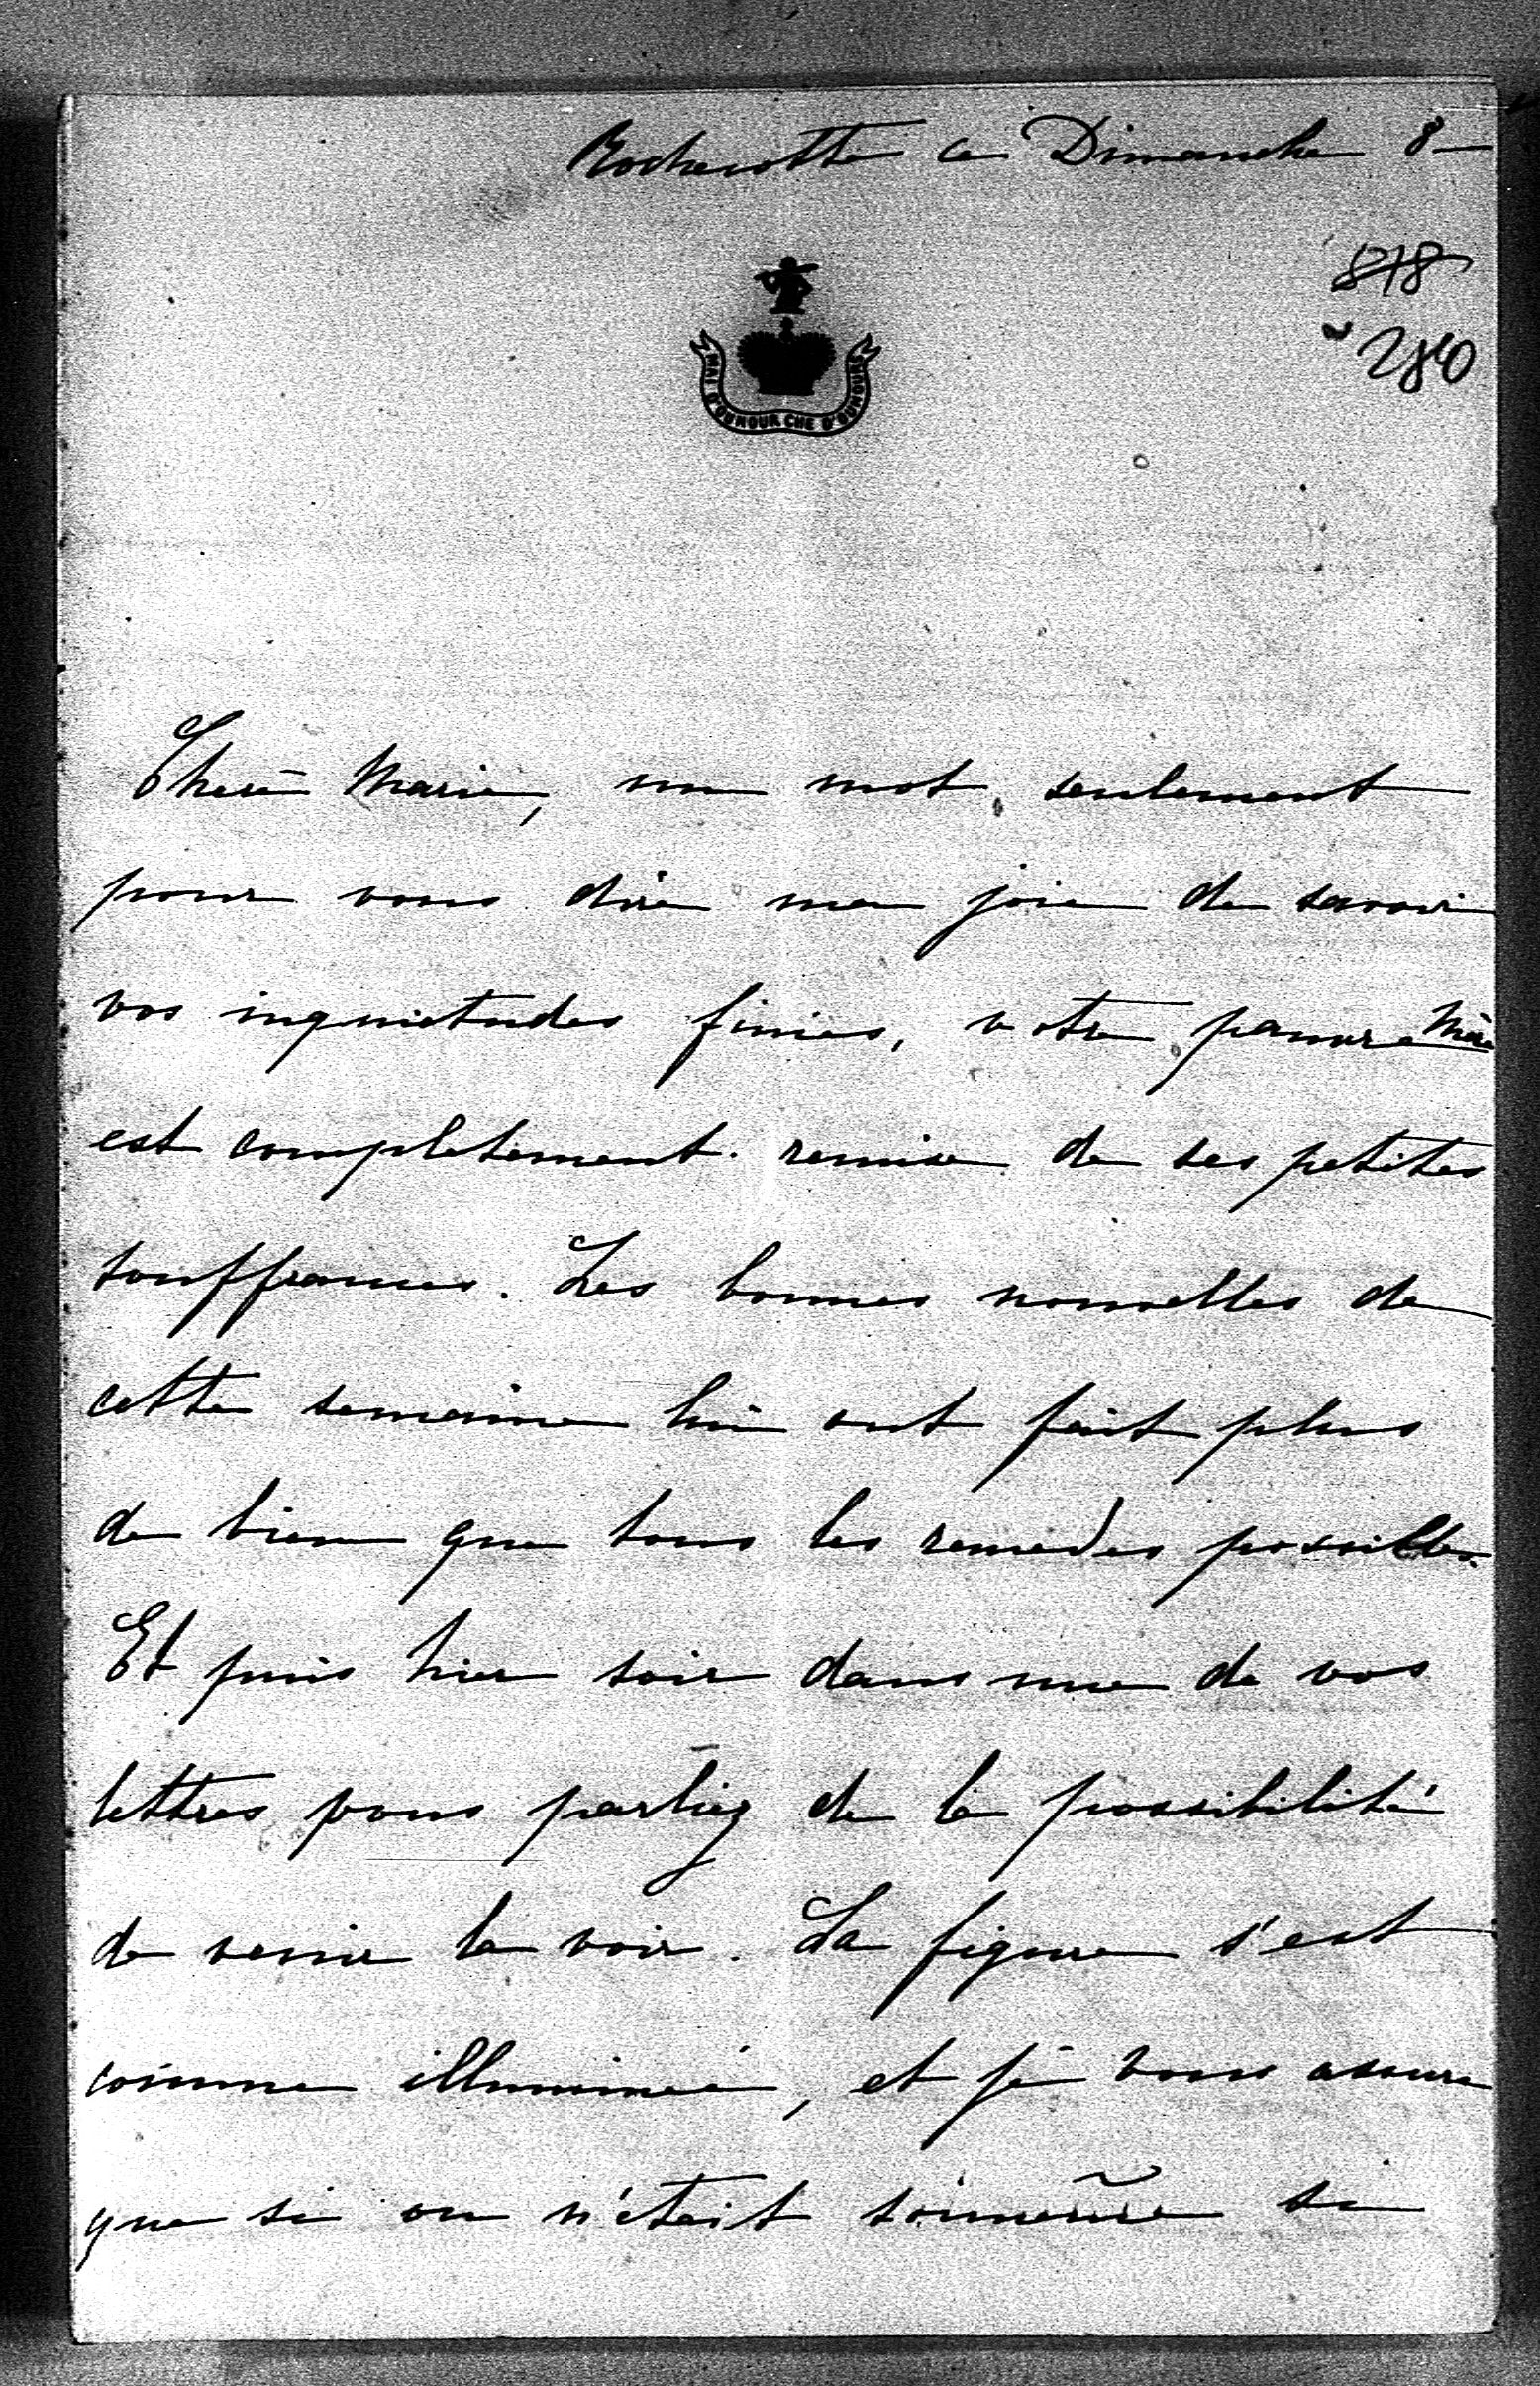 Rochecotte ce Dimanche 8
878
280
RAI D'OUNOUR CHE D'OUNOURS
Chere Marie, un mot seulement
pour vous dire ma joie de savoir
vos inquietudes finies, votre pauvre Mère
est completement remise de ses petites
souffrances. Les bonnes nouvelles de
cette semaine lui ont fait plus
de bien que tous les remedes possibles.
Et puis hier soir dans une de vos
lettres vous parliez de la possibilité
de venir la voir. La figure s'est
comme illuminée, et je vous assure
que si on n'était si